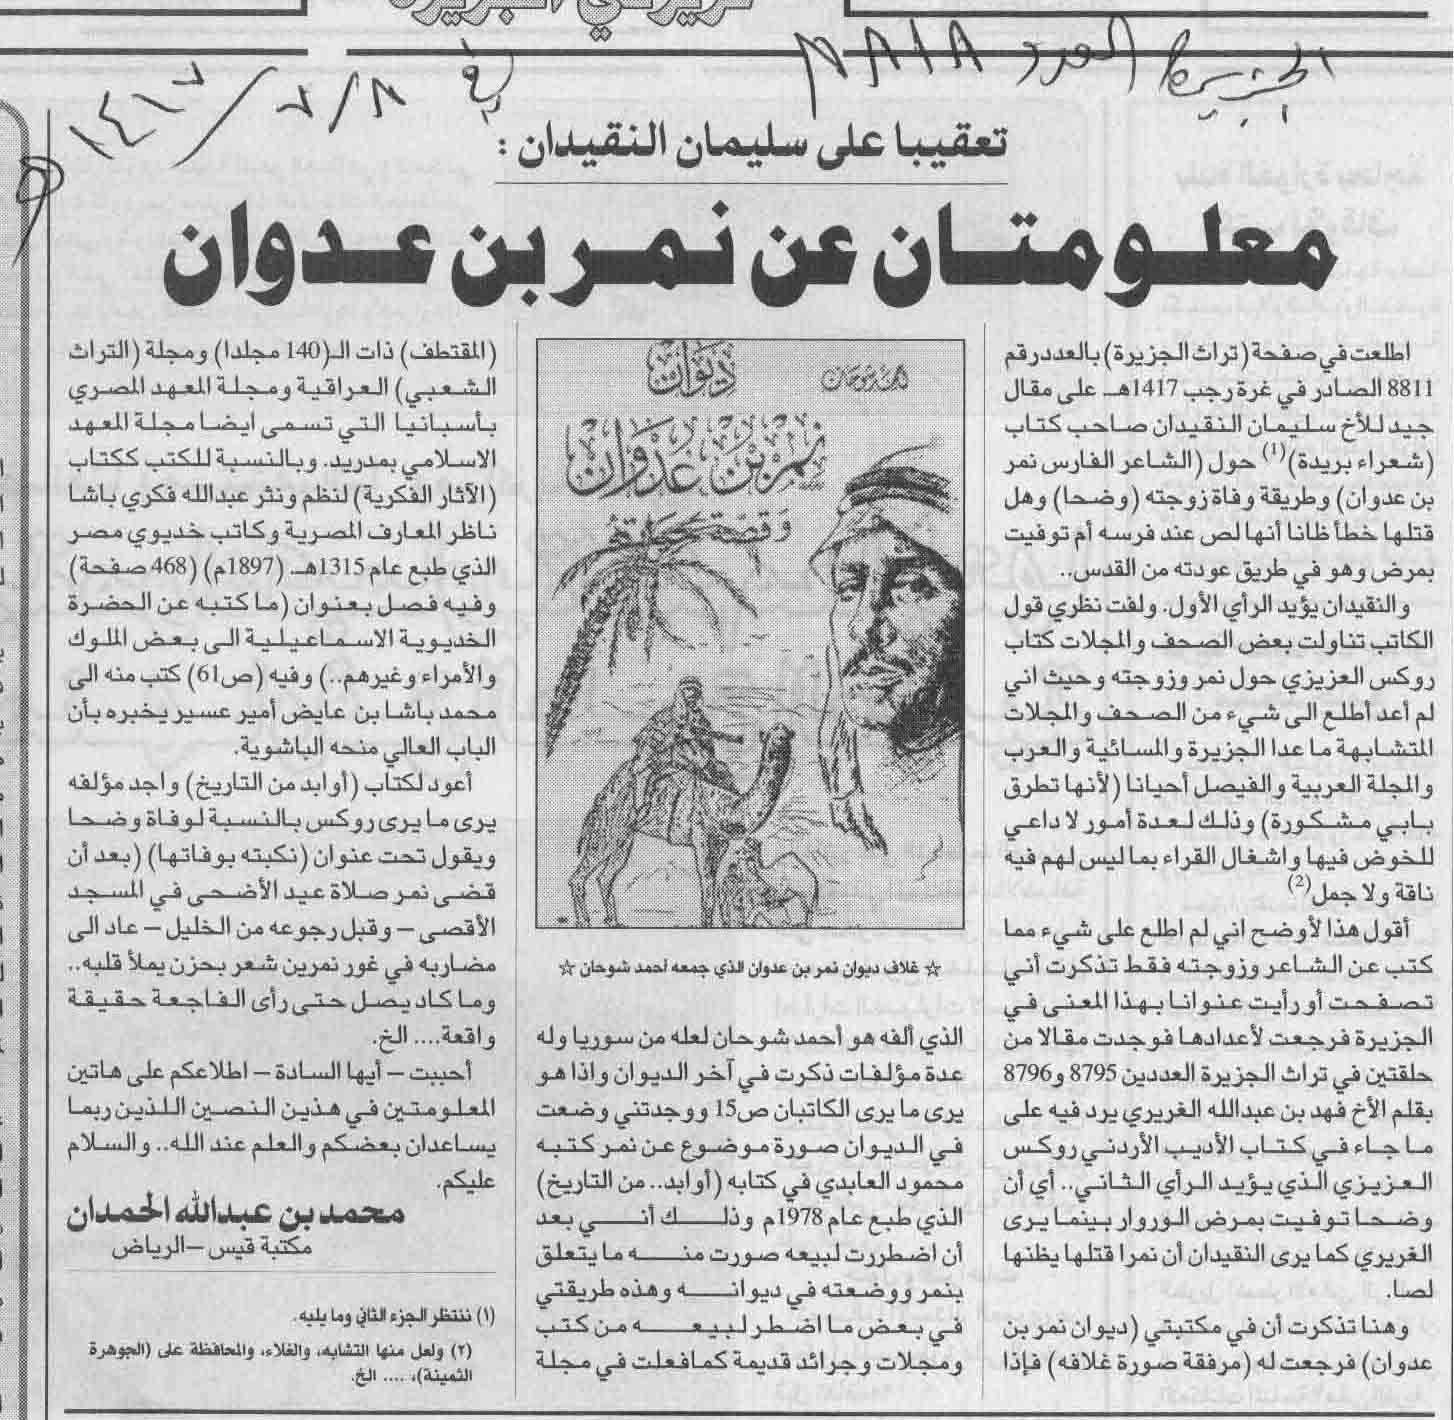 الجزيرة العدد ٨٨١٨
في ٨/٧/١٤١٧هـ
تعقيبا على سليمان النقيدان :
معلومتان عن نمر بن عدوان
اطلعت في صفحة (تراث الجزيرة) بالعدد رقم
8811 الصادر في غرة رجب 1417هـ على مقال
جيد للأخ سليمان النقيدان صاحب كتاب
(شعراء بريدة)(1) حول (الشاعر الفارس نمر
بن عدوان) وطريقة وفاة زوجته (وضحا) وهل
قتلها خطأ ظانا أنها لص عند فرسه أم توفيت
بمرض وهو في طريق عودته من القدس..
والنقيدان يؤيد الرأي الأول. ولفت نظري قول
الكاتب تناولت بعض الصحف والمجلات كتاب
روكس العزيزي حول نمر وزوجته وحيث اني
لم أعد أطلع الى شيء من الصحف والمجلات
المتشابهة ما عدا الجزيرة والمسائية والعرب
والمجلة العربية والفيصل أحيانا (لأنها تطرق
بابي مشكورة) وذلك لعدة أمور لا داعي
للخوض فيها واشغال القراء بما ليس لهم فيه
ناقة ولا جمل(2)
أقول هذا لأوضح اني لم اطلع على شيء مما
كتب عن الشاعر وزوجته فقط تذكرت أني
تصفحت أو رأيت عنوانا بهذا المعنى في
الجزيرة فرجعت لأعدادها فوجدت مقالا من
حلقتين في تراث الجزيرة العددين 8795 و8796
بقلم الأخ فهد بن عبدالله الغريري يرد فيه على
ما جاء في كتاب الأديب الأردني روكس
العزيزي الذي يؤيد الرأي الثاني.. أي أن
وضحا توفيت بمرض الوروار بينما يرى
الغريري كما يرى النقيدان أن نمرا قتلها يظنها
لصا.
وهنا تذكرت أن في مكتبتي (ديوان نمر بن
عدوان) فرجعت له (مرفقة صورة غلافه) فإذا
أحمد شوحان
ديوان
نمر بن عدوان
وقصة حياته
☆ غلاف ديوان نمر بن عدوان الذي جمعه أحمد شوحان ☆
الذي ألفه هو أحمد شوحان لعله من سوريا وله
عدة مؤلفات ذكرت في آخر الديوان واذا هو
يرى ما يرى الكاتبان ص15 ووجدتني وضعت
في الديوان صورة موضوع عن نمر كتبه
محمود العابدي في كتابه (أوابد.. من التاريخ)
الذي طبع عام 1978م وذلك أني بعد
أن اضطررت لبيعه صورت منه ما يتعلق
بنمر ووضعته في ديوانه وهذه طريقتي
في بعض ما اضطر لبيعه من كتب
ومجلات وجرائد قديمة كما فعلت في مجلة
(المقتطف) ذات الـ(140 مجلدا) ومجلة (التراث
الشعبي) العراقية ومجلة المعهد المصري
بأسبانيا التي تسمى ايضا مجلة المعهد
الاسلامي بمدريد. وبالنسبة للكتب ككتاب
(الآثار الفكرية) لنظم ونثر عبدالله فكري باشا
ناظر المعارف المصرية وكاتب خديوي مصر
الذي طبع عام 1315هـ (1897م) (468 صفحة)
وفيه فصل بعنوان (ما كتبه عن الحضرة
الخديوية الاسماعيلية الى بعض الملوك
والأمراء وغيرهم..) وفيه (ص61) كتب منه الى
محمد باشا بن عايض أمير عسير يخبره بأن
الباب العالي منحه الباشوية.
أعود لكتاب (أوابد من التاريخ) واجد مؤلفه
يرى ما يرى روكس بالنسبة لوفاة وضحا
ويقول تحت عنوان (نكبته بوفاتها) (بعد أن
قضى نمر صلاة عيد الأضحى في المسجد
الأقصى – وقبل رجوعه من الخليل – عاد الى
مضاربه في غور نمرين شعر بحزن يملأ قلبه..
وما كاد يصل حتى رأى الفاجعة حقيقة
واقعة.... الخ.
أحببت – أيها السادة – اطلاعكم على هاتين
المعلومتين في هذين النصين اللذين ربما
يساعدان بعضكم والعلم عند الله.. والسلام
عليكم.
محمد بن عبدالله الحمدان
مكتبة قيس –الرياض
(١) ننتظر الجزء الثاني وما يليه.
(٢) ولعل منها التشابه، والغلاء، والمحافظة على (الجوهرة
الثمينة)، .... الخ.